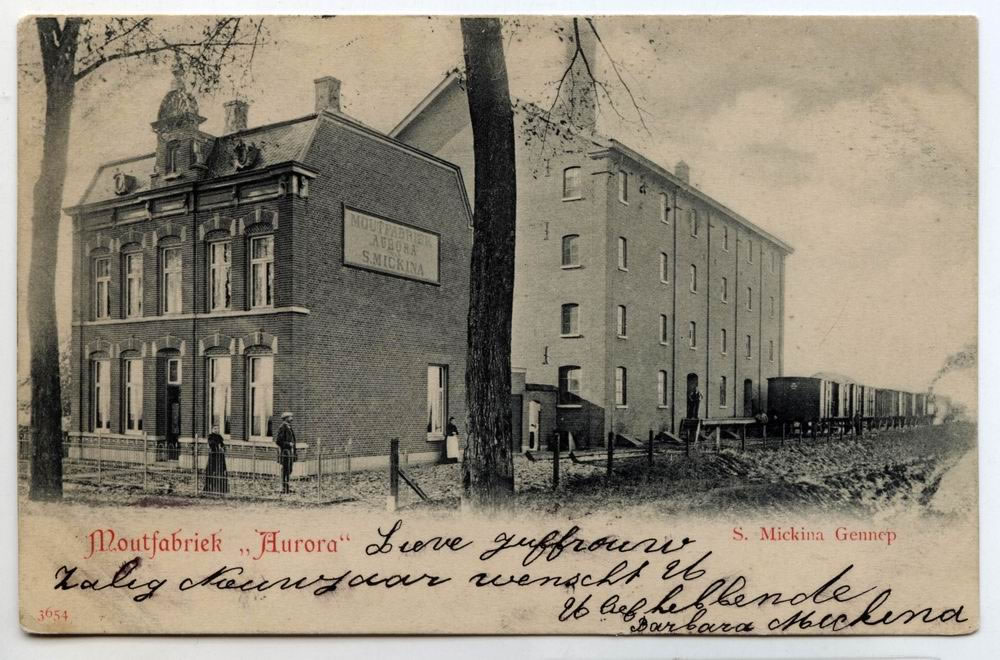 MOUTFABRIEK
AURORA
S. MICKINA
Moutfabriek „Aurora“
S. Mickina Gennep
Lieve juffrouw
Zalig Nieuwjaar wenscht U
U liefhebbende
Barbara Mickina
3654